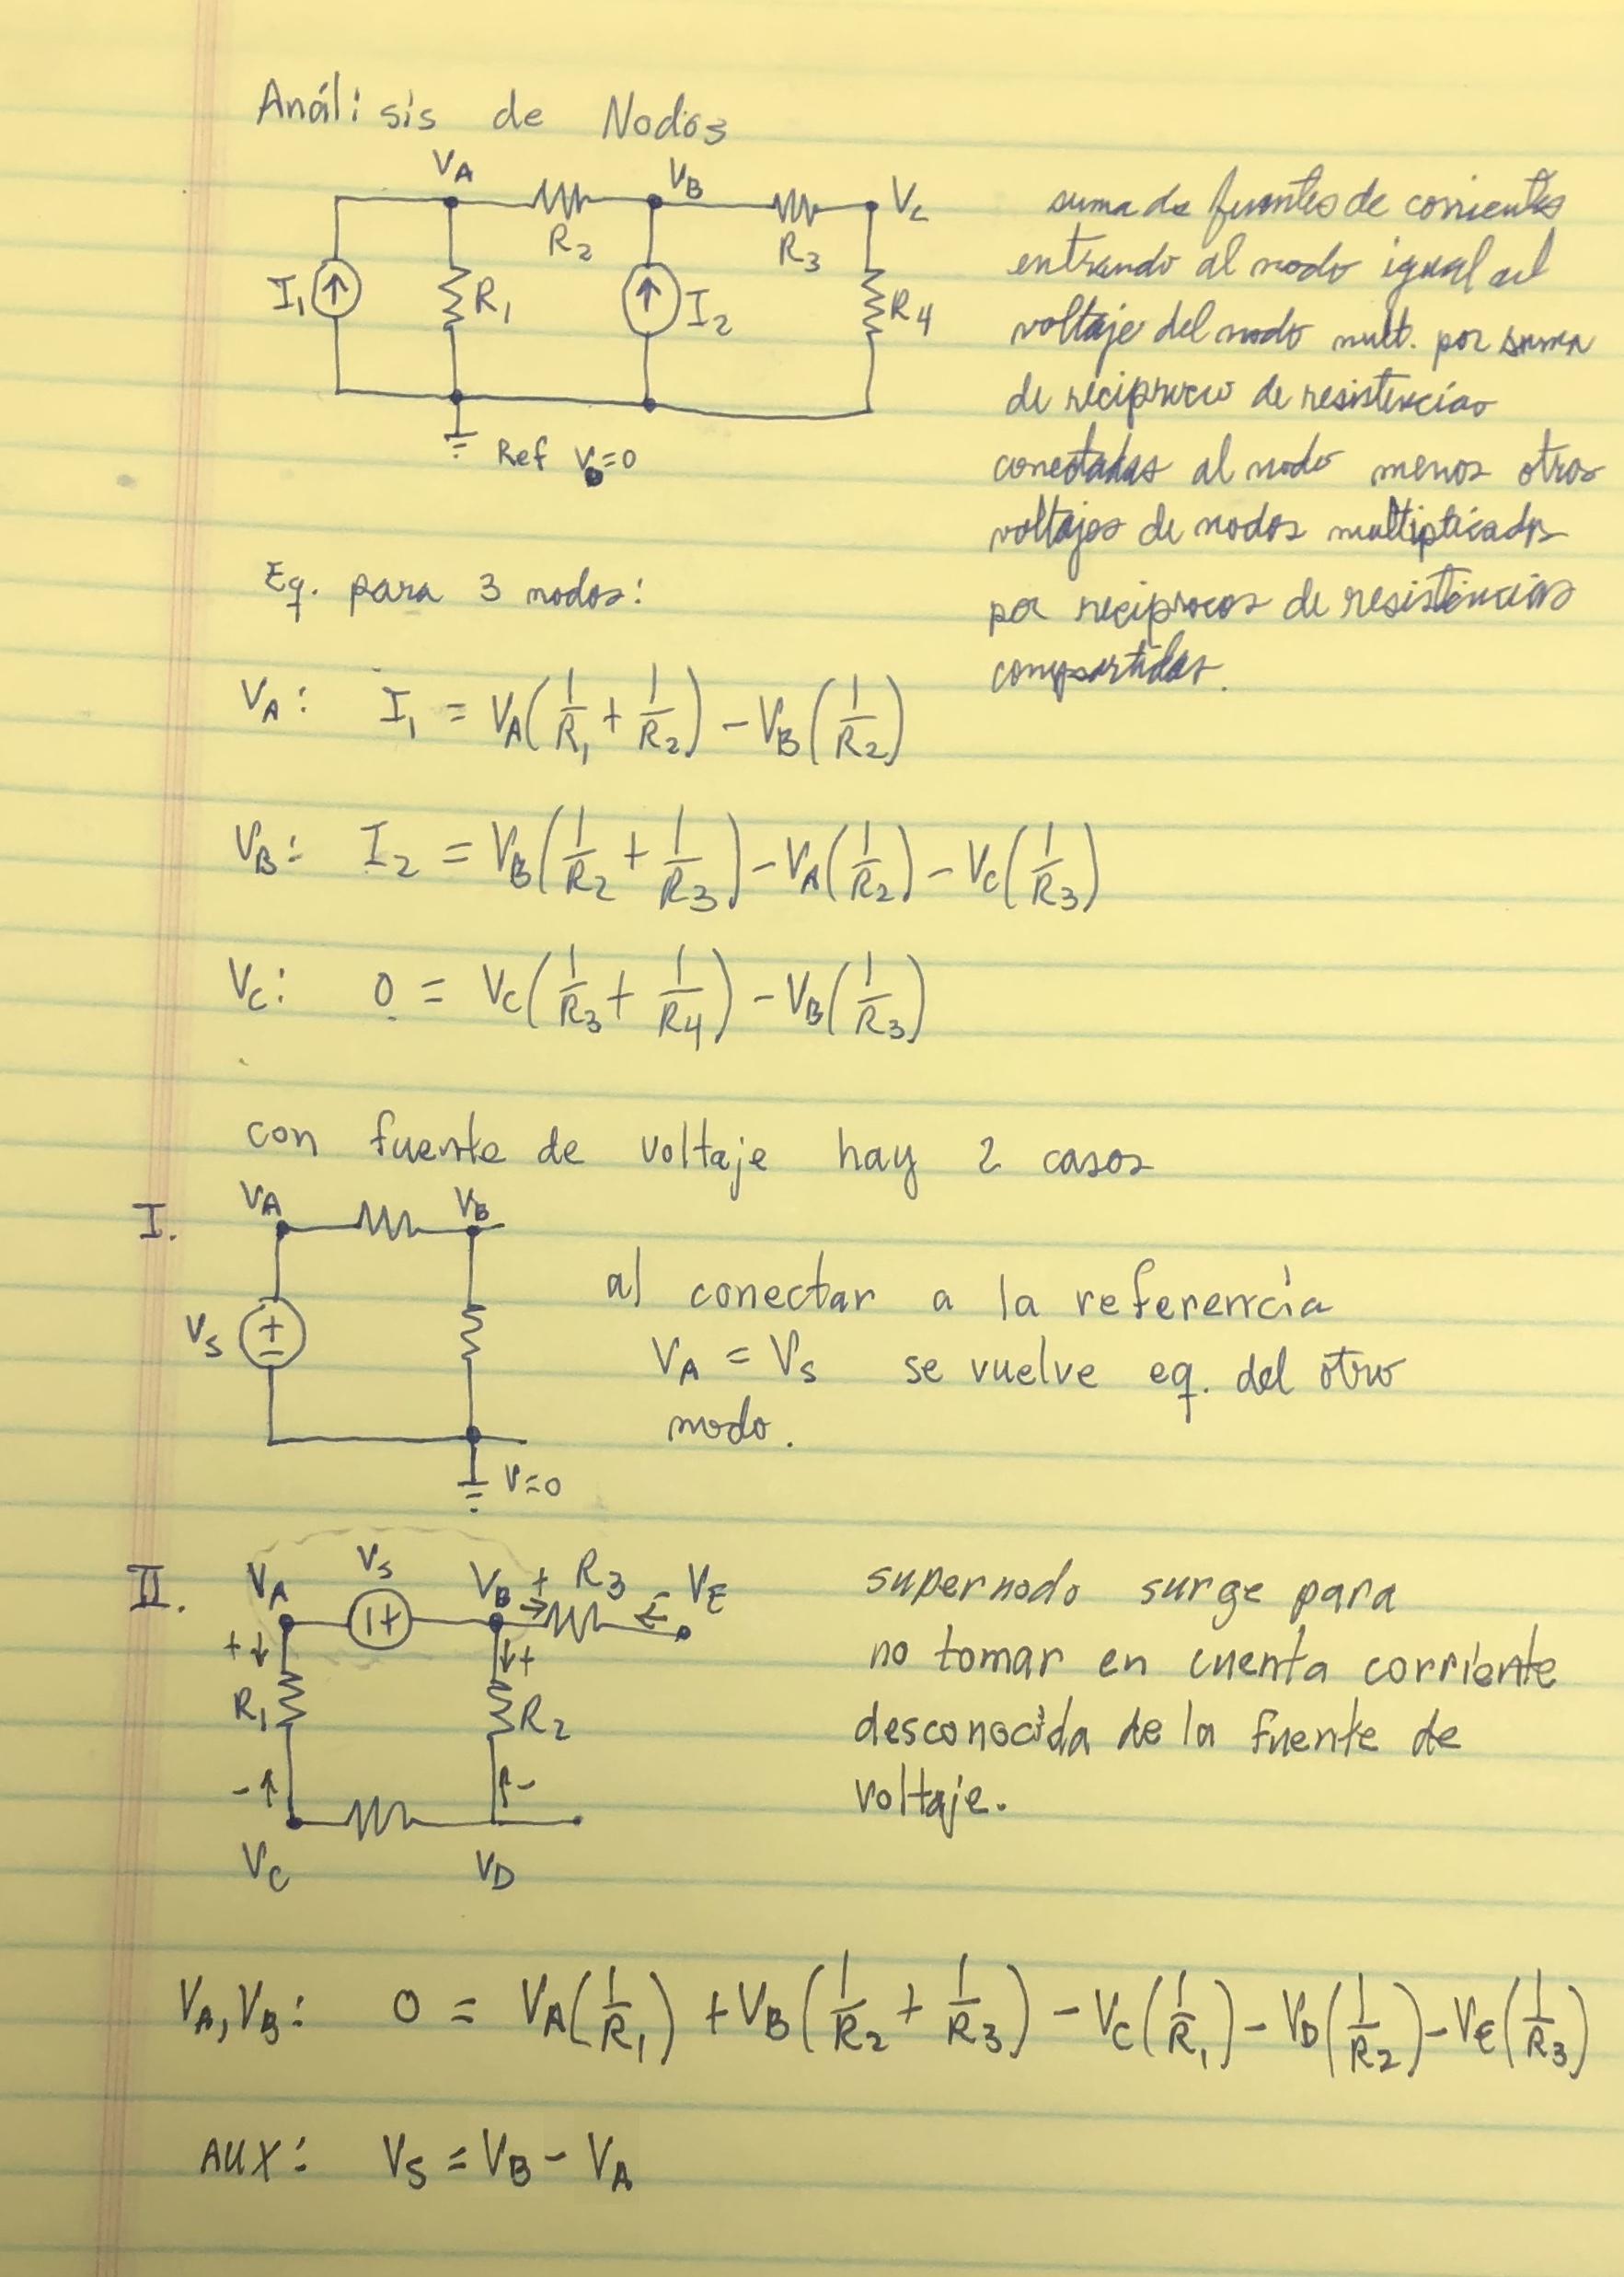 Análisis de Nodos
V_A V_B V_C
R_2 R_3
I_1 R_1 I_2 R_4
Ref V_0=0
suma de fuentes de corrientes
entrando al nodo igual al
voltaje del nodo mult. por suma
de reciproco de resistencias
conectadas al nodo menos otros
voltajes de nodos multiplicados
por reciprocos de resistencias
compartidas.
Eq. para 3 nodos:
V_A: I_1 = V_A(1/R_1 + 1/R_2) - V_B(1/R_2)
V_B: I_2 = V_B(1/R_2 + 1/R_3) - V_A(1/R_2) - V_C(1/R_3)
V_C: 0 = V_C(1/R_3 + 1/R_4) - V_B(1/R_3)
con fuente de voltaje hay 2 casos
I. V_A V_B
V_S + -
V=0
al conectar a la referencia
V_A = V_S se vuelve eq. del otro
nodo.
II. V_A V_S V_B + R_3 - V_E
- +
+ +
R_1 R_2
- -
V_C V_D
supernodo surge para
no tomar en cuenta corriente
desconocida de la fuente de
voltaje.
V_A, V_B: 0 = V_A(1/R_1) + V_B(1/R_2 + 1/R_3) - V_C(1/R_1) - V_D(1/R_2) - V_E(1/R_3)
AUX: V_S = V_B - V_A